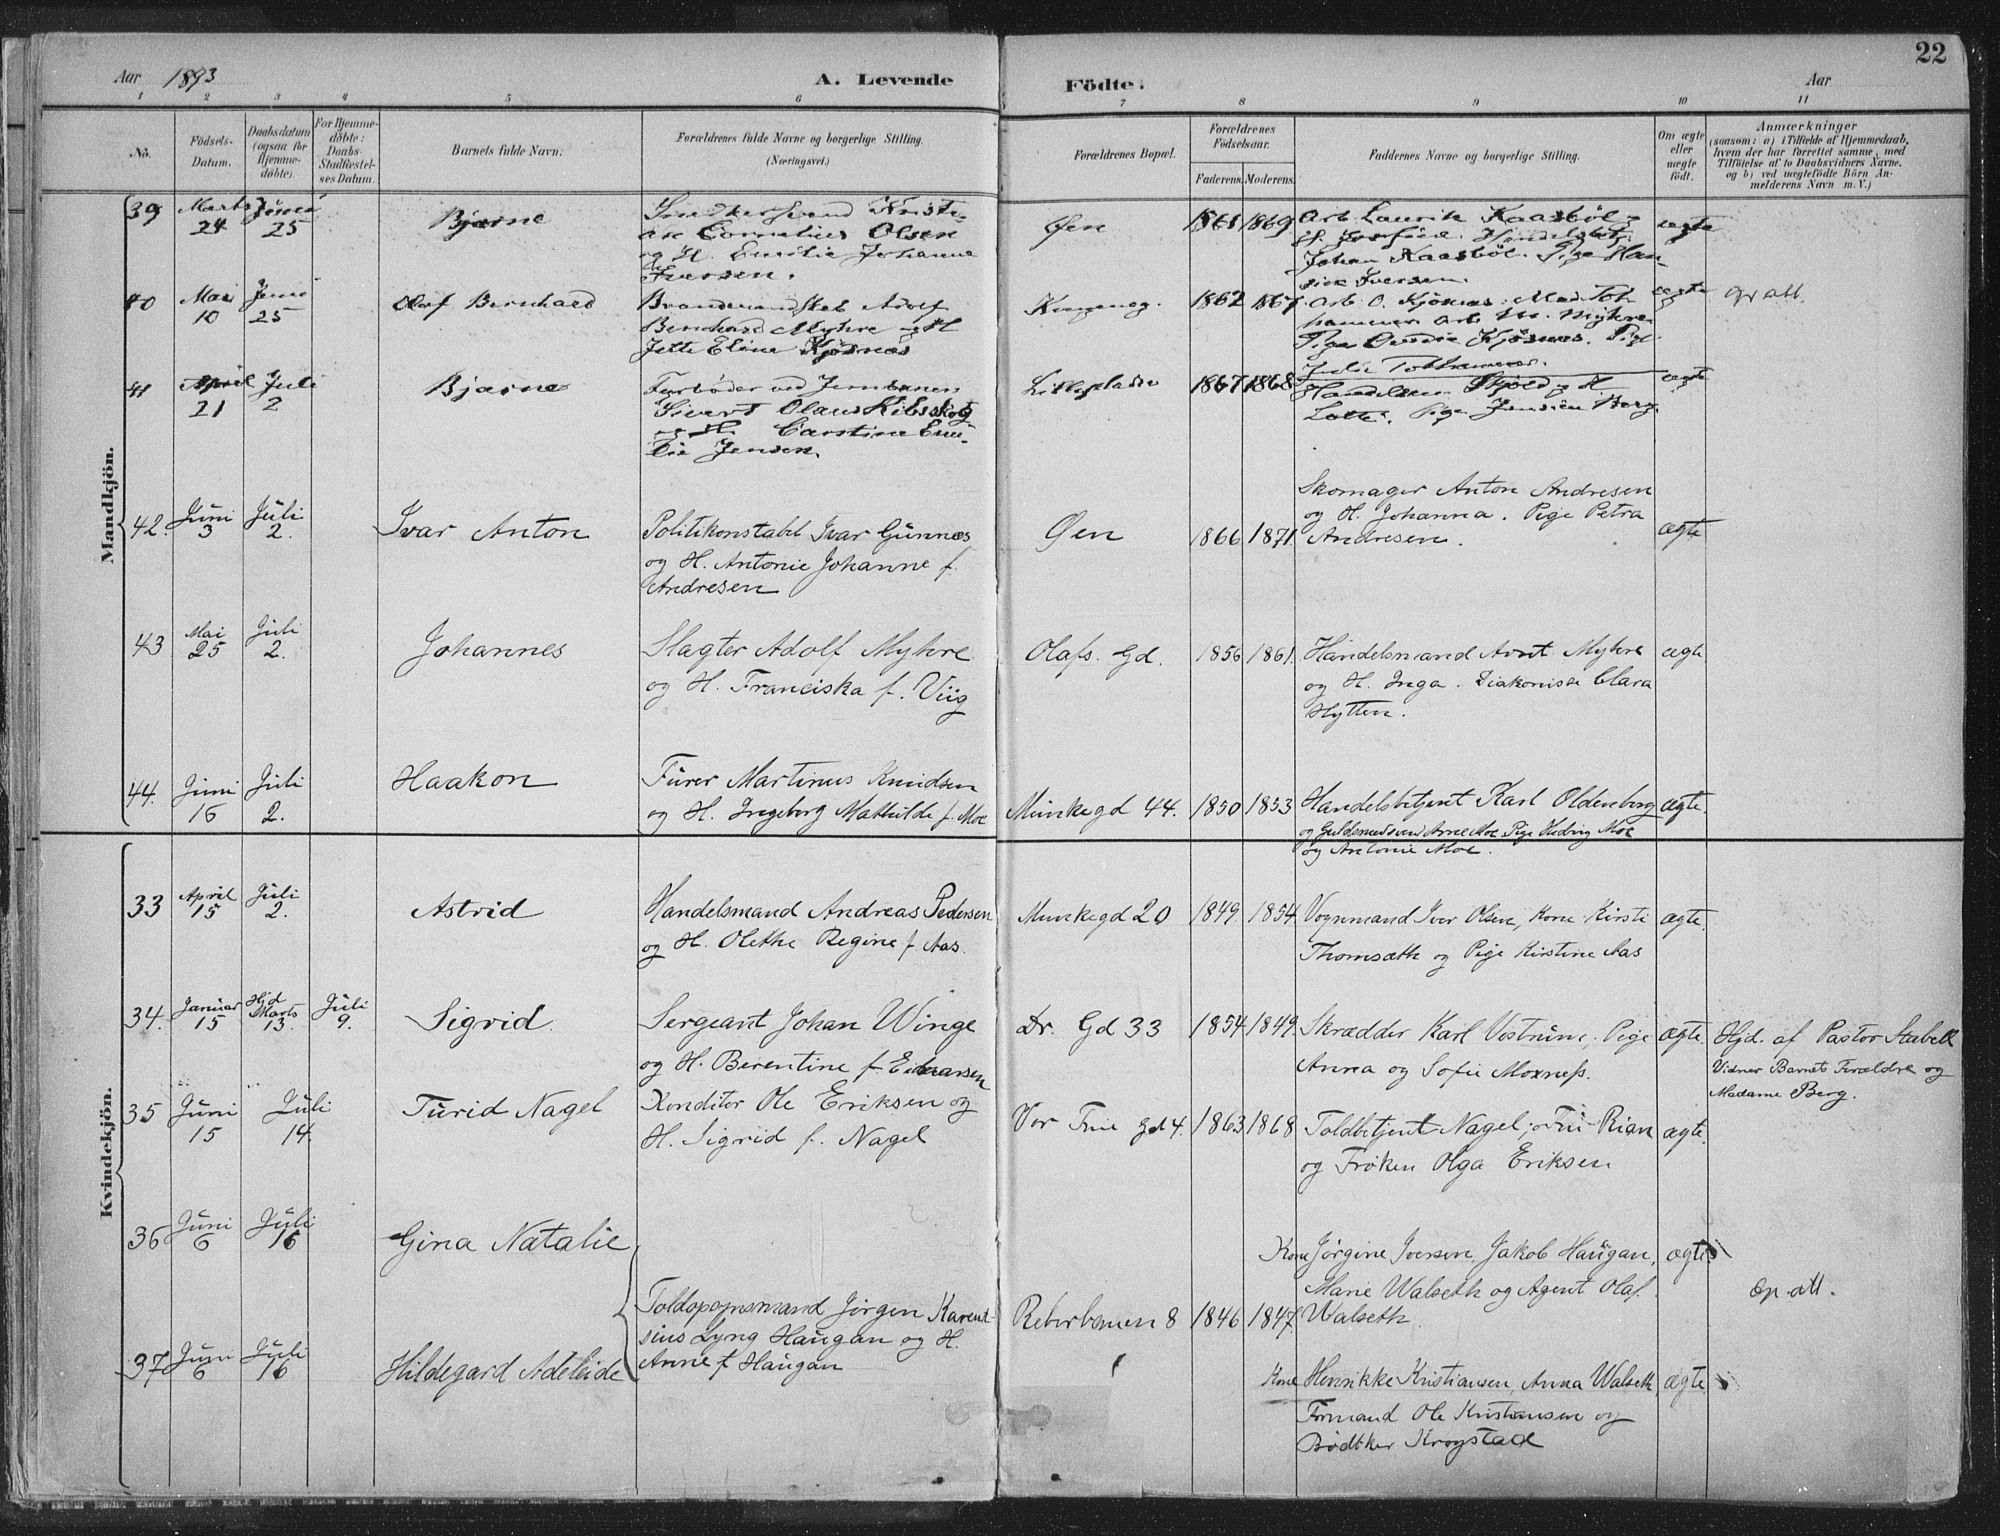 22
Aar 1893
A. Levende Födte.
Aar
1 2 3 4 5 6 7 8 9 10 11
No.
Födsels-Datum.
Daabsdatum (ogsaa for Hjemme-döbte).
For Hjemme-döbte: Daabs-Stadfæstel-ses Datum.
Barnets fulde Navn.
Forældrenes fulde Navne og borgerlige Stilling.
(Næringsvei.)
Forældrenes Bopæl.
Forældrenes Födselsaar.
Faderens. Moderens.
Faddernes Navne og borgerlige Stilling.
Om ægte eller uægte födt.
Anmærkninger
(saasom: a) i Tilfælde af Hjemmedaab,
hvem der har forrettet samme, med
Tilföielse af to Daabsvidners Navne,
og b) ved uægtefödte Börn An-
melderens Navn m. V.)
Mandkjön.
39 Marts 24 Juni 25 Bjarne
Kristi-
an Cornelius Olsen
og H. Emilie Johanne
Iversen.
Øen 1868 1869
Arb. Laurits Kaasböl
Johan Kaasböl. Pige Han-
sine Iversen.
ægte
40 Mai 10 Juni 25 Olaf Bernhard
Brandmandskab Adolf
Bernhard Myhre og H
Jette Eline Kjösnes
1862 1867
Arb. O. Kjösnes. Mad. Tot-
hammer Arb M. Myhre
Pige Kjösnes. Pige
Julie Tothammer.
ægte op att
41 April 21 Juli 2 Bjarne
Fyrböder ved Jernbanen
Sivert Olaus Kibsskog
og H. Carstine Emi-
lie Jensen.
1867 1868
Handelsm. Skjold og H
Lotte. Pige Berg.
ægte
42. Juni 3 Juli 2. Ivar Anton
Politikonstabel Ivar Günnes
og H. Antonie Johanne f.
Andresen
Øen 1866 1871.
Skomager Anton Andresen
og H. Johanna. Pige Petra
Andresen.
ægte
43 Mai 25 Juli 2. Johannes
Slagter Adolf Myhre
og H. Franciska f. Viig
Olafs. Gd. 1856 1861.
Handelsmand Arnt Myhre
og H. Inga. Diakonisse Clara
Hytten.
ægte
44. Juni 16 Juli 2. Haakon
Fürer Martinus Knudsen
og H. Ingeborg Mathilde f. Moe
Munkegd 44. 1850 1853
Handelsbetjent Karl Oldenborg
og Guldsmedsvend Arne Moe. Pige Hedvig Moe
og Antonie Moe.
ægte.
Kvindekjön.
33 April 15 Juli 2. Astrid
Handelsmand Andreas Pedersen
og H. Olethe Regine f. Aas.
Munkegd 20 1849. 1854.
Vognmand Iver Olsen, Kone Kirsti
Thomsæth og Pige Kirstine Aas
ægte.
34. Januar 15 Hjd Marts 13. Juli 9. Sigrid
Sergeant Johan Winge
og H. Berentine f. Edvarsen
Dr. Gd 33 1854 1849.
Skrædder Karl Vestrüm, Pige
Anna og Sofie Moxness.
ægte.
Hjd. af Pastor Stabell
Vidner Barnets Forældre og
Madame Berg.
35 Juni 15 Juli 14. Türid Nagel
Konditor Ole Eriksen og
H. Sigrid f. Nagel
Vor Frue Gd 4. 1863 1868
Toldbetjent Nagel; Frü Rian
og Frøken Olga Eriksen
ægte.
36 Juni 6 Juli 16 Gina Natalie
Toldopsynsmand Jörgen Karent-
sius Lyng Haugan og H.
Anne f Haugan
Reberbanen 8 1846 1847.
Kone Jørgine Iversen, Jakob Haugan,
Marie Walseth og Agent Olaf
Walseth.
ægte
op att.
37 Juni 6 Juli 16 Hildegard Adeleide
Kone Henrikke Kristiansen, Anna Walseth
Formand Ole Kristiansen og
Bødtker Krogstad
ægte